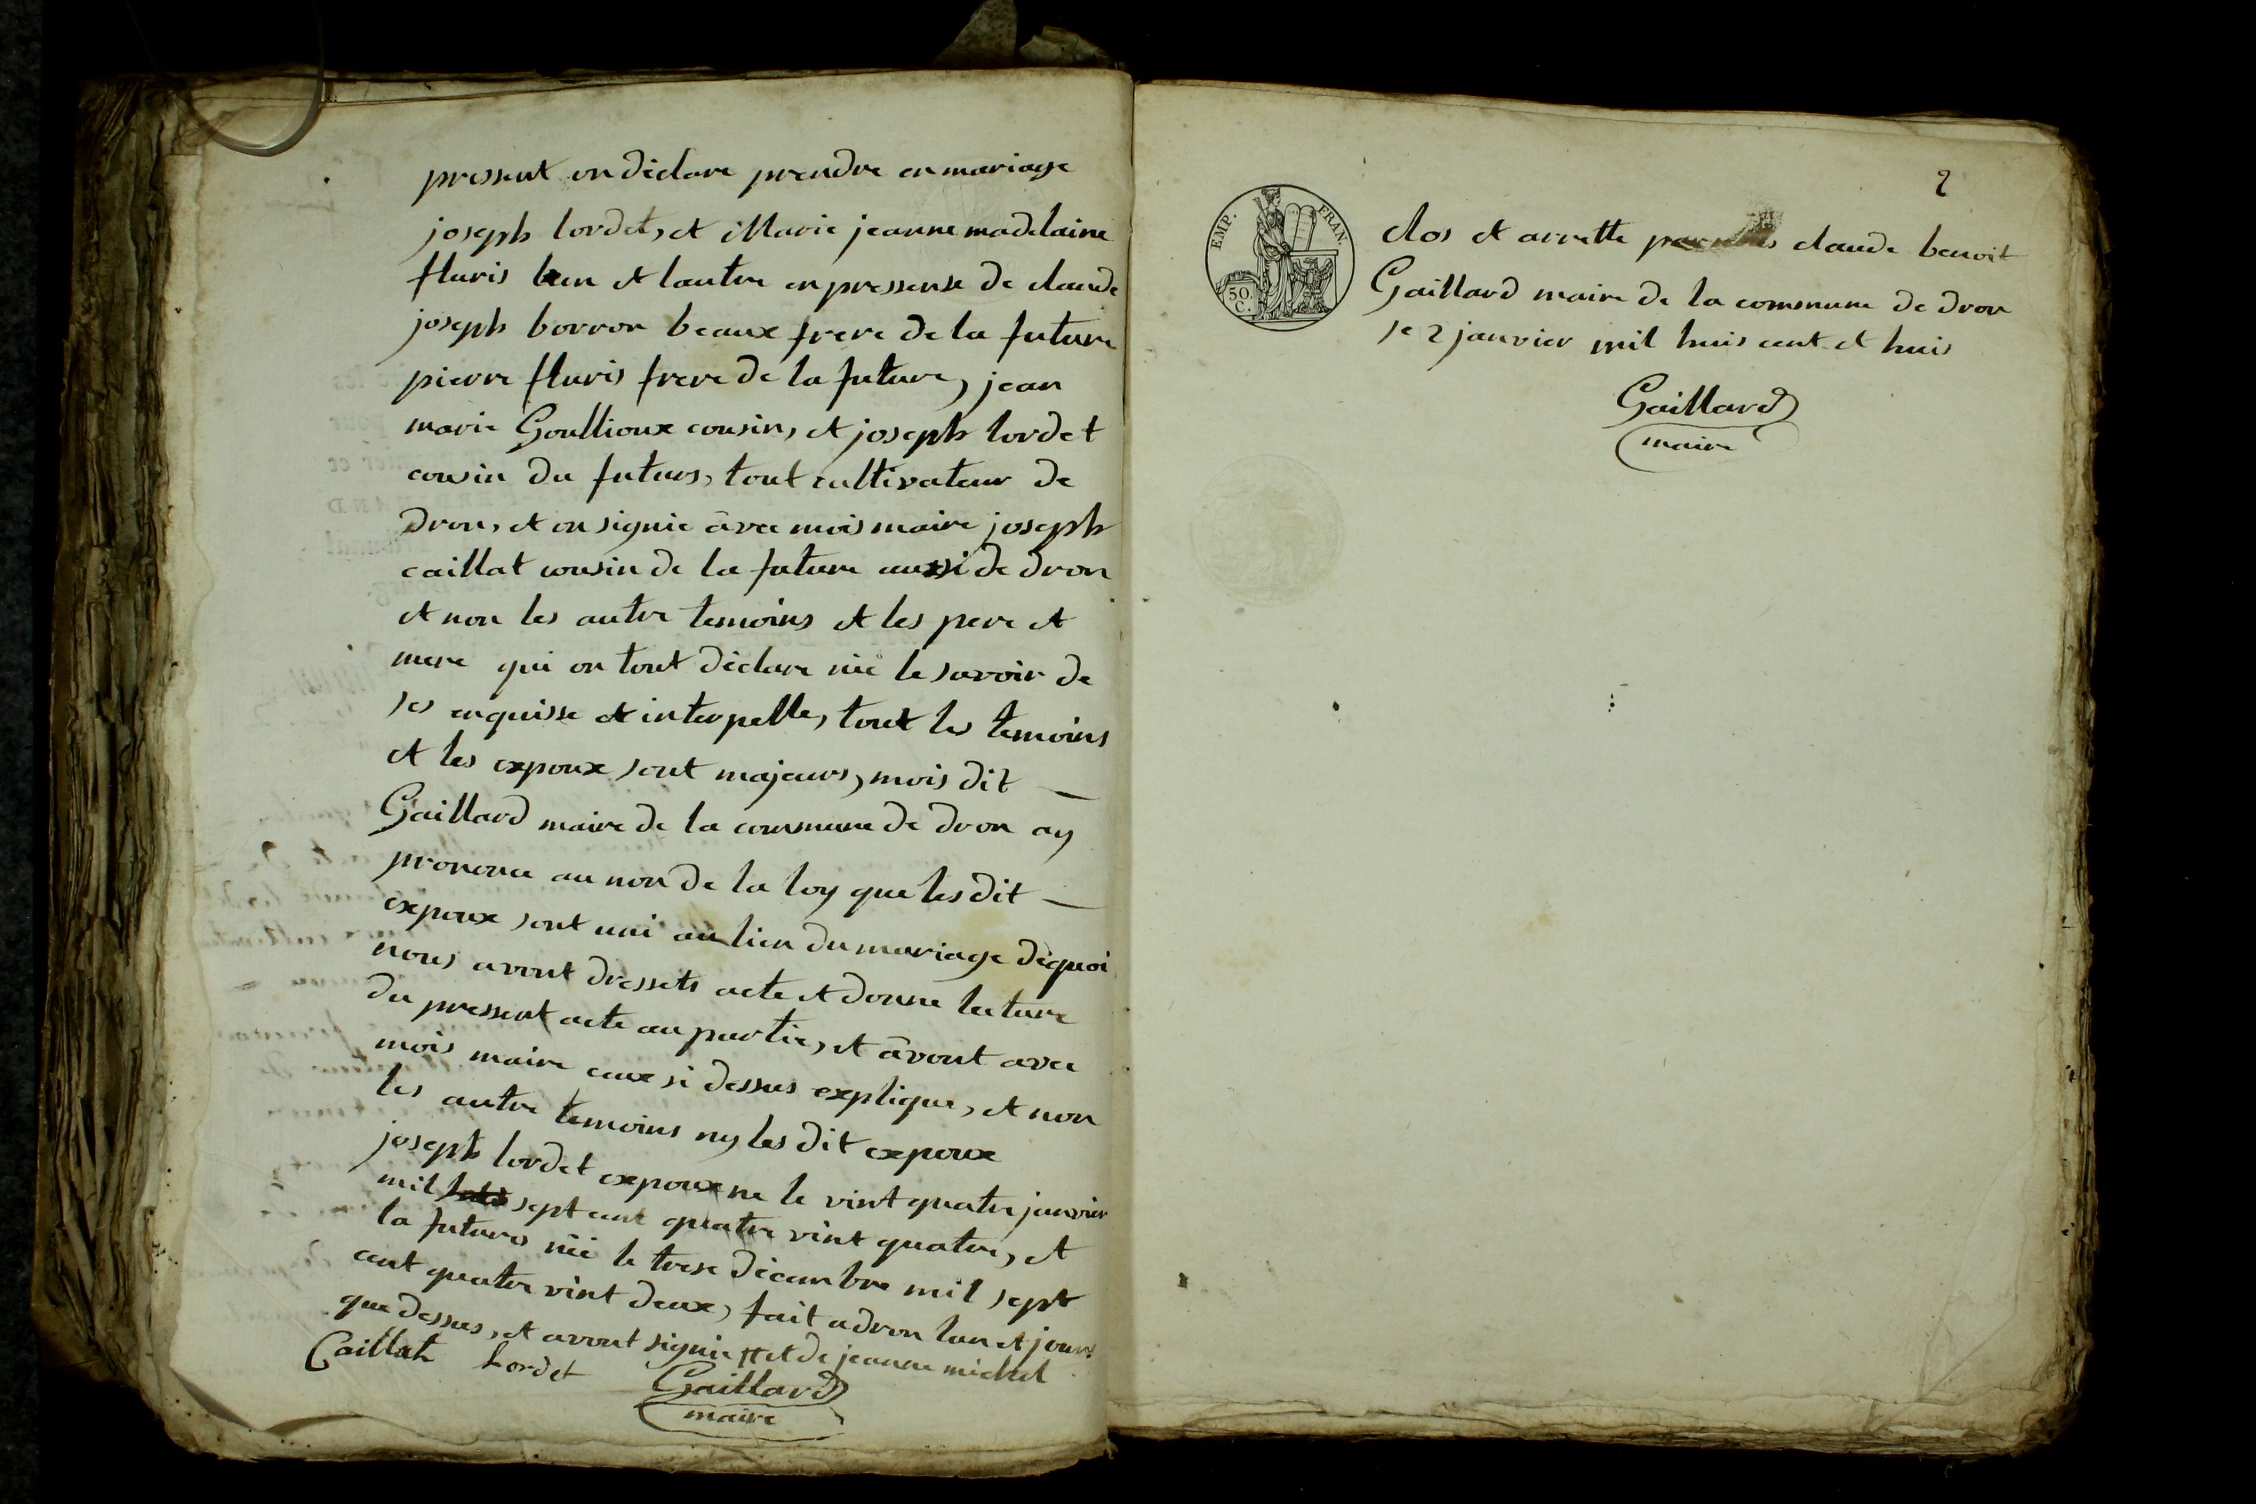 pressent on déclare prendre en mariage
joseph lordet, et Marie jeanne madelaine
fluris lun et lautre en pressense de claude
joseph borron beaux frere de la future
pierre fluris frere de la future, jean
marie Goullioux cousin, et joseph lordet
cousin du futurs, tout cultivateur de
dron, et on signie âvec mois maire joseph
caillat cousin de la future aussi de dron
et non les autre temoins et les pere et
mere qui on tout déclare nie le savoir de
ses enquisse et interpelle, tout les temoins
et les expoux sont majeurs, mois dit —
Gaillard maire de la commune de dron ay
prononce au non de la loy que les dit —
expoux sont uni au lien du mariage dequoi
nous avont dressets acte et donne lecture
du pressent acte au partie, et âvont avec
mois maire eaux si dessus explique, et non
les autre temoins ny les dit expoux
joseph lordet expoux ne le vint quatre janvier
mil sept cent quatre vint quatre, et
la futures née le trese décembre mil sept
cent quatre vint deux, fait a dron lan et jours
que dessus, et avont signie et de jeanne michel
Caillat Lordet Gaillard
maire
2
EMP. FRAN.
50.
C.
clos et arrette par claude benoit
Gaillard maire de la commune de dron
se 2 janvier mil huis cent et huis
Gaillard
maire